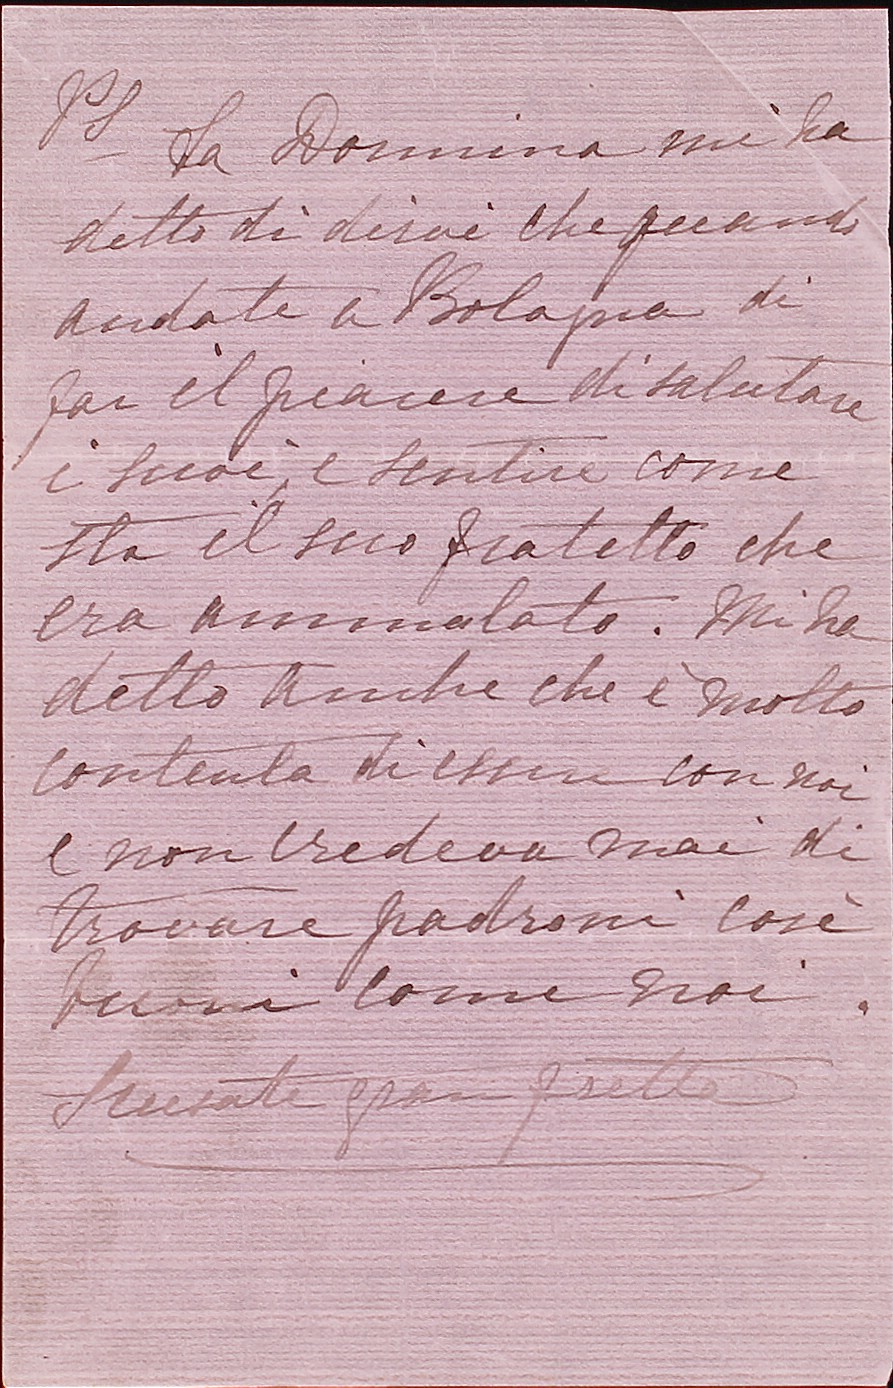 PS La Donnina mi ha
detto di dirvi che quando
andate a Bologna di
far il piacere di salutare
i suoi, e sentire come
sta il suo fratello che
era ammalato. Mi ha
detto anche che è molto
contenta di essere con noi
e non credeva mai di
trovare padroni così
buoni come noi.
Scusate gran fretta